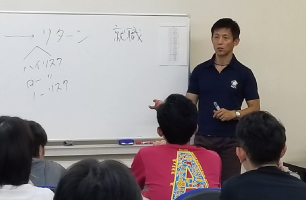 → リターン 就職
ハイリスク
ロー 〃
ノーリスク